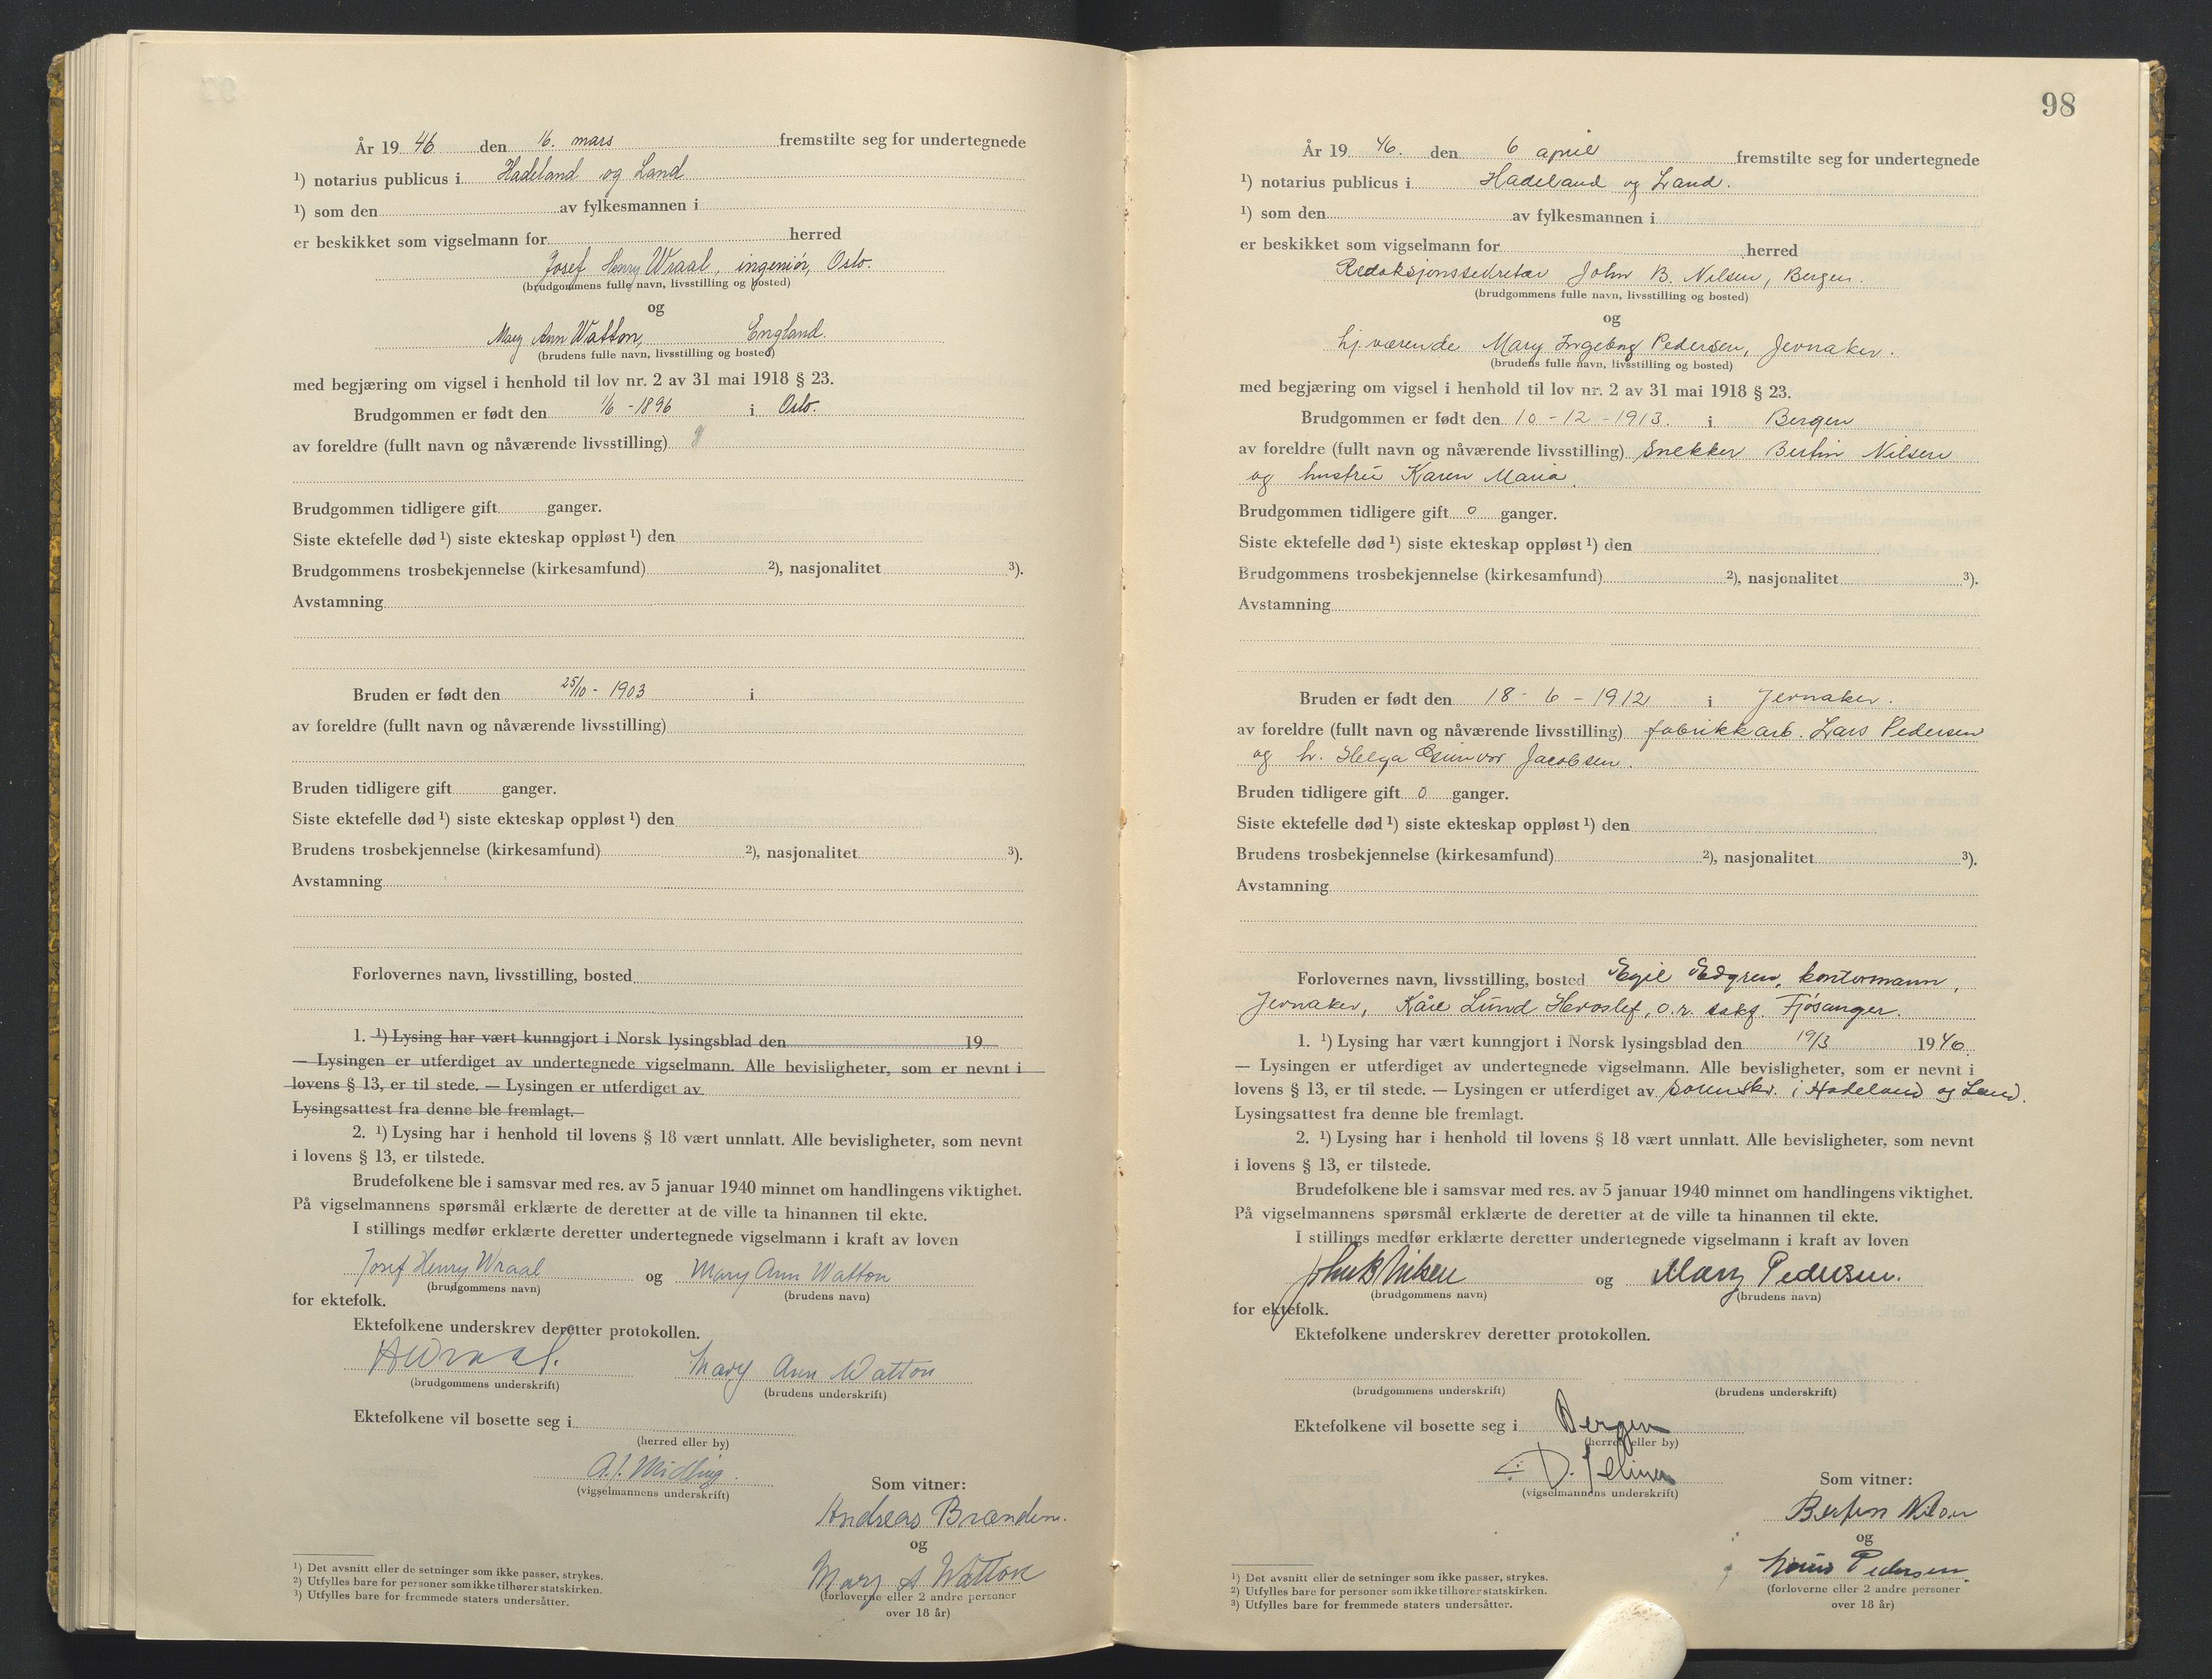 År 19 46 den 16. mars fremstilte seg for undertegnede
¹) notarius publicus i Hadeland og Land
¹) som den av fylkesmannen i
er beskikket som vigselmann for herred
Josef Henry Wraal, ingeniör, Oslo.
(brudgommens fulle navn, livsstilling og bosted)
og
Mary Ann Watton, England.
(brudens fulle navn, livsstilling og bosted)
med begjæring om vigsel i henhold til lov nr. 2 av 31 mai 1918 § 23.
Brudgommen er født den 1/6 - 1896 i Oslo.
av foreldre (fullt navn og nåværende livsstilling)
Brudgommen tidligere gift ganger.
Siste ektefelle død ¹) siste ekteskap oppløst ¹) den
Brudgommens trosbekjennelse (kirkesamfund) ²), nasjonalitet ³).
Avstamning
Bruden er født den 25/10 - 1903 i
av foreldre (fullt navn og nåværende livsstilling)
Bruden tidligere gift ganger.
Siste ektefelle død ¹) siste ekteskap oppløst ¹) den
Brudens trosbekjennelse (kirkesamfund) ²), nasjonalitet ³).
Avstamning
Forlovernes navn, livsstilling, bosted
1. ¹) Lysing har vært kunngjort i Norsk lysingsblad den 19
— Lysingen er utferdiget av undertegnede vigselmann. Alle bevisligheter, som er nevnt i
lovens § 13, er til stede. — Lysingen er utferdiget av
Lysingsattest fra denne ble fremlagt.
2. ¹) Lysing har i henhold til lovens § 18 vært unnlatt. Alle bevisligheter, som nevnt
i lovens § 13, er tilstede.
Brudefolkene ble i samsvar med res. av 5 januar 1940 minnet om handlingens viktighet.
På vigselmannens spørsmål erklærte de deretter at de ville ta hinannen til ekte.
I stillings medfør erklærte deretter undertegnede vigselmann i kraft av loven
Josef Henry Wraal og Mary Ann Watton
(brudgommens navn) (brudens navn)
for ektefolk.
Ektefolkene underskrev deretter protokollen.
Mary Ann Watton
(brudgommens underskrift) (brudens underskrift)
Ektefolkene vil bosette seg i
(herred eller by)
(vigselmannens underskrift)
Som vitner:
Andreas
og
Mary A Watton
(forloverne eller 2 andre personer
over 18 år)
¹) Det avsnitt eller de setninger som ikke passer, strykes.
²) Utfylles bare for personer som ikke tilhører statskirken.
³) Utfylles bare for fremmede staters undersåtter.
98
År 19 46. den 6 april fremstilte seg for undertegnede
¹) notarius publicus i Hadeland og Land.
¹) som den av fylkesmannen i
er beskikket som vigselmann for herred
Redaksjonssekretær John B. Nilsen, Bergen.
(brudgommens fulle navn, livsstilling og bosted)
og
hj.værende Mary Ingeborg Pedersen, Jevnaker.
(brudens fulle navn, livsstilling og bosted)
med begjæring om vigsel i henhold til lov nr. 2 av 31 mai 1918 § 23.
Brudgommen er født den 10 - 12 - 1913. i Bergen
av foreldre (fullt navn og nåværende livsstilling) Snekker Bertin Nilsen
og hustru Karen Maria.
Brudgommen tidligere gift 0 ganger.
Siste ektefelle død ¹) siste ekteskap oppløst ¹) den
Brudgommens trosbekjennelse (kirkesamfund) ²), nasjonalitet ³).
Avstamning
Bruden er født den 18 - 6 - 1912 i Jevnaker.
av foreldre (fullt navn og nåværende livsstilling) fabrikkarb. Lars Pedersen
og h. Helga Gunvor Jacobsen.
Bruden tidligere gift 0 ganger.
Siste ektefelle død ¹) siste ekteskap oppløst ¹) den
Brudens trosbekjennelse (kirkesamfund) ²), nasjonalitet ³).
Avstamning
Forlovernes navn, livsstilling, bosted Egil Edgren, kontormann,
Jevnaker, Kåre Lund o.r. sakf. Fjösanger.
1. ¹) Lysing har vært kunngjort i Norsk lysingsblad den 19/3 19 46.
— Lysingen er utferdiget av undertegnede vigselmann. Alle bevisligheter, som er nevnt i
lovens § 13, er til stede. — Lysingen er utferdiget av sorenskr. i Hadeland og Land.
Lysingsattest fra denne ble fremlagt.
2. ¹) Lysing har i henhold til lovens § 18 vært unnlatt. Alle bevisligheter, som nevnt
i lovens § 13, er tilstede.
Brudefolkene ble i samsvar med res. av 5 januar 1940 minnet om handlingens viktighet.
På vigselmannens spørsmål erklærte de deretter at de ville ta hinannen til ekte.
I stillings medfør erklærte deretter undertegnede vigselmann i kraft av loven
John B Nilsen og Mary Pedersen.
(brudgommens navn) (brudens navn)
for ektefolk.
Ektefolkene underskrev deretter protokollen.
(brudgommens underskrift) (brudens underskrift)
Ektefolkene vil bosette seg i Bergen
(herred eller by)
(vigselmannens underskrift)
Som vitner:
og
Pedersen.
(forloverne eller 2 andre personer
over 18 år)
¹) Det avsnitt eller de setninger som ikke passer, strykes.
²) Utfylles bare for personer som ikke tilhører statskirken.
³) Utfylles bare for fremmede staters undersåtter.